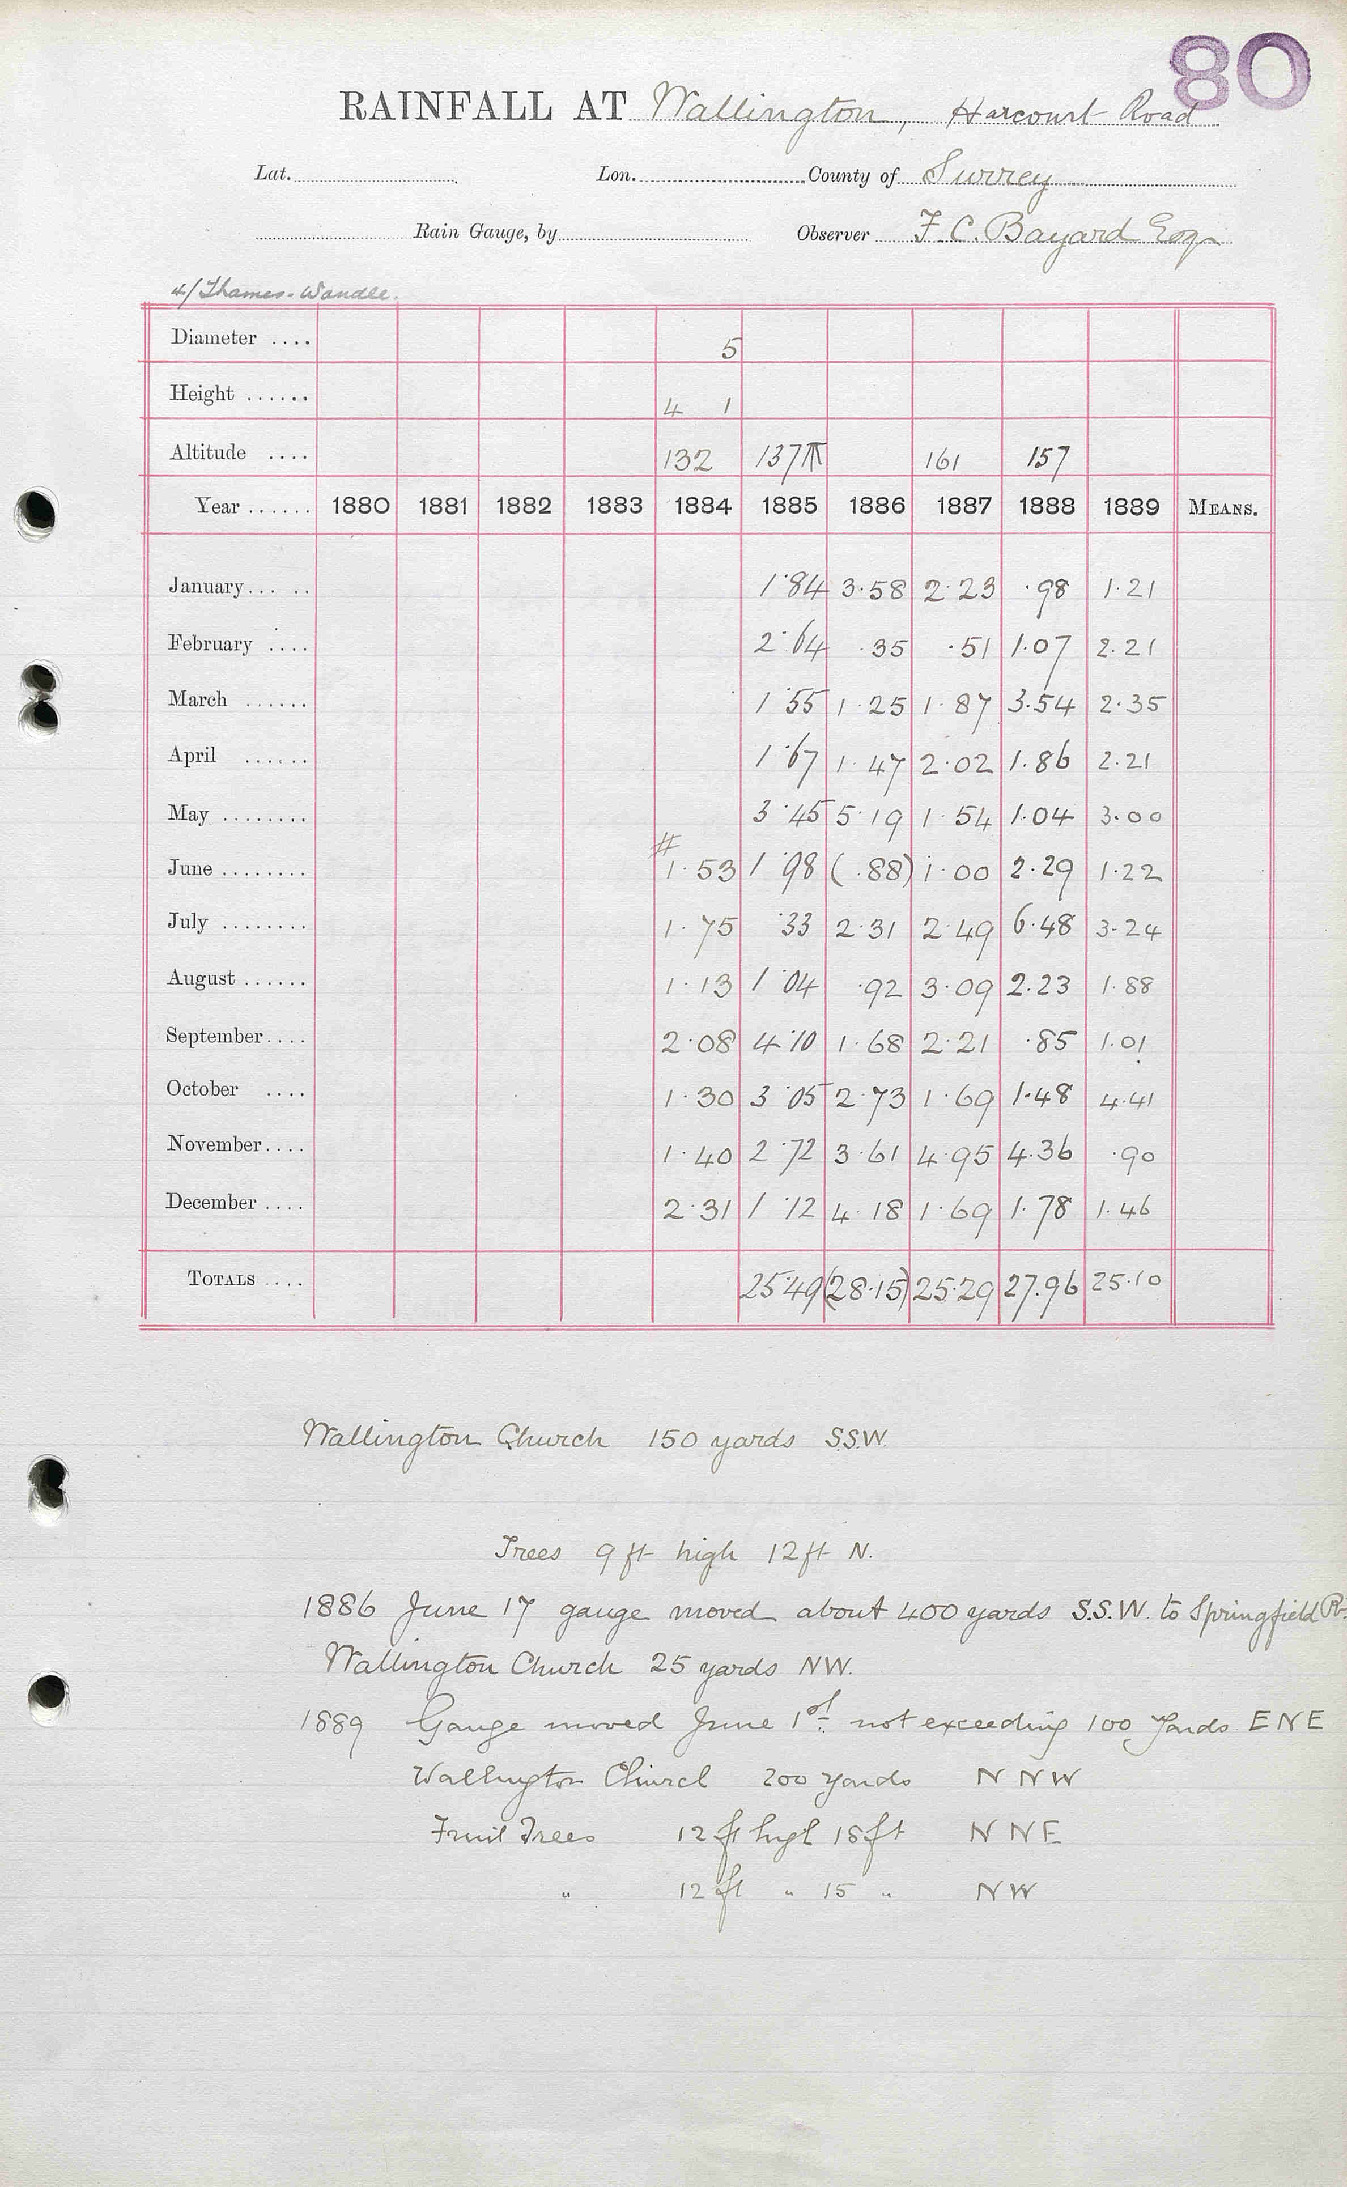 80
RAINFALL AT Wallington, Harcourt Road
Lat. Lon. County of Surrey
Rain Gauge, by Observer F. C. Bayard Esqr
4/Thames-Wandle.
Diameter .... 5
Height ...... 4 1
Altitude .... 132 137 161 157
Year ...... 1880 1881 1882 1883 1884 1885 1886 1887 1888 1889 MEANS.
January...... 1.84 3.58 2.23 .98 1.21
February .... 2.64 .35 .51 1.07 2.21
March ...... 1.55 1.25 1.87 3.54 2.35
April ...... 1.67 1.47 2.02 1.86 2.21
May ........ 3.45 5.19 1.54 1.04 3.00
#
June ........ 1.53 1.98 (.88) 1.00 2.29 1.22
July ........ 1.75 .33 2.31 2.49 6.48 3.24
August ...... 1.13 1.04 .92 3.09 2.23 1.88
September.... 2.08 4.10 1.68 2.21 .85 1.01
October .... 1.30 3.05 2.73 1.69 1.48 4.41
November.... 1.40 2.72 3.61 4.95 4.36 .90
December .... 2.31 1.12 4.18 1.69 1.78 1.46
TOTALS .... 25.49 (28.15) 25.29 27.96 25.10
Wallington Church 150 yards S.S.W.
Trees 9 ft high 12 ft N.
1886 June 17 gauge moved about 400 yards S.S.W. to Springfield Rd.
Wallington Church 25 yards NW.
1889 Gauge moved June 1st. not exceeding 100 Yards ENE
Wallington Church 200 Yards N N W
Fruit Trees 12 ft high 18 ft N N E
" 12 ft " 15 " N W